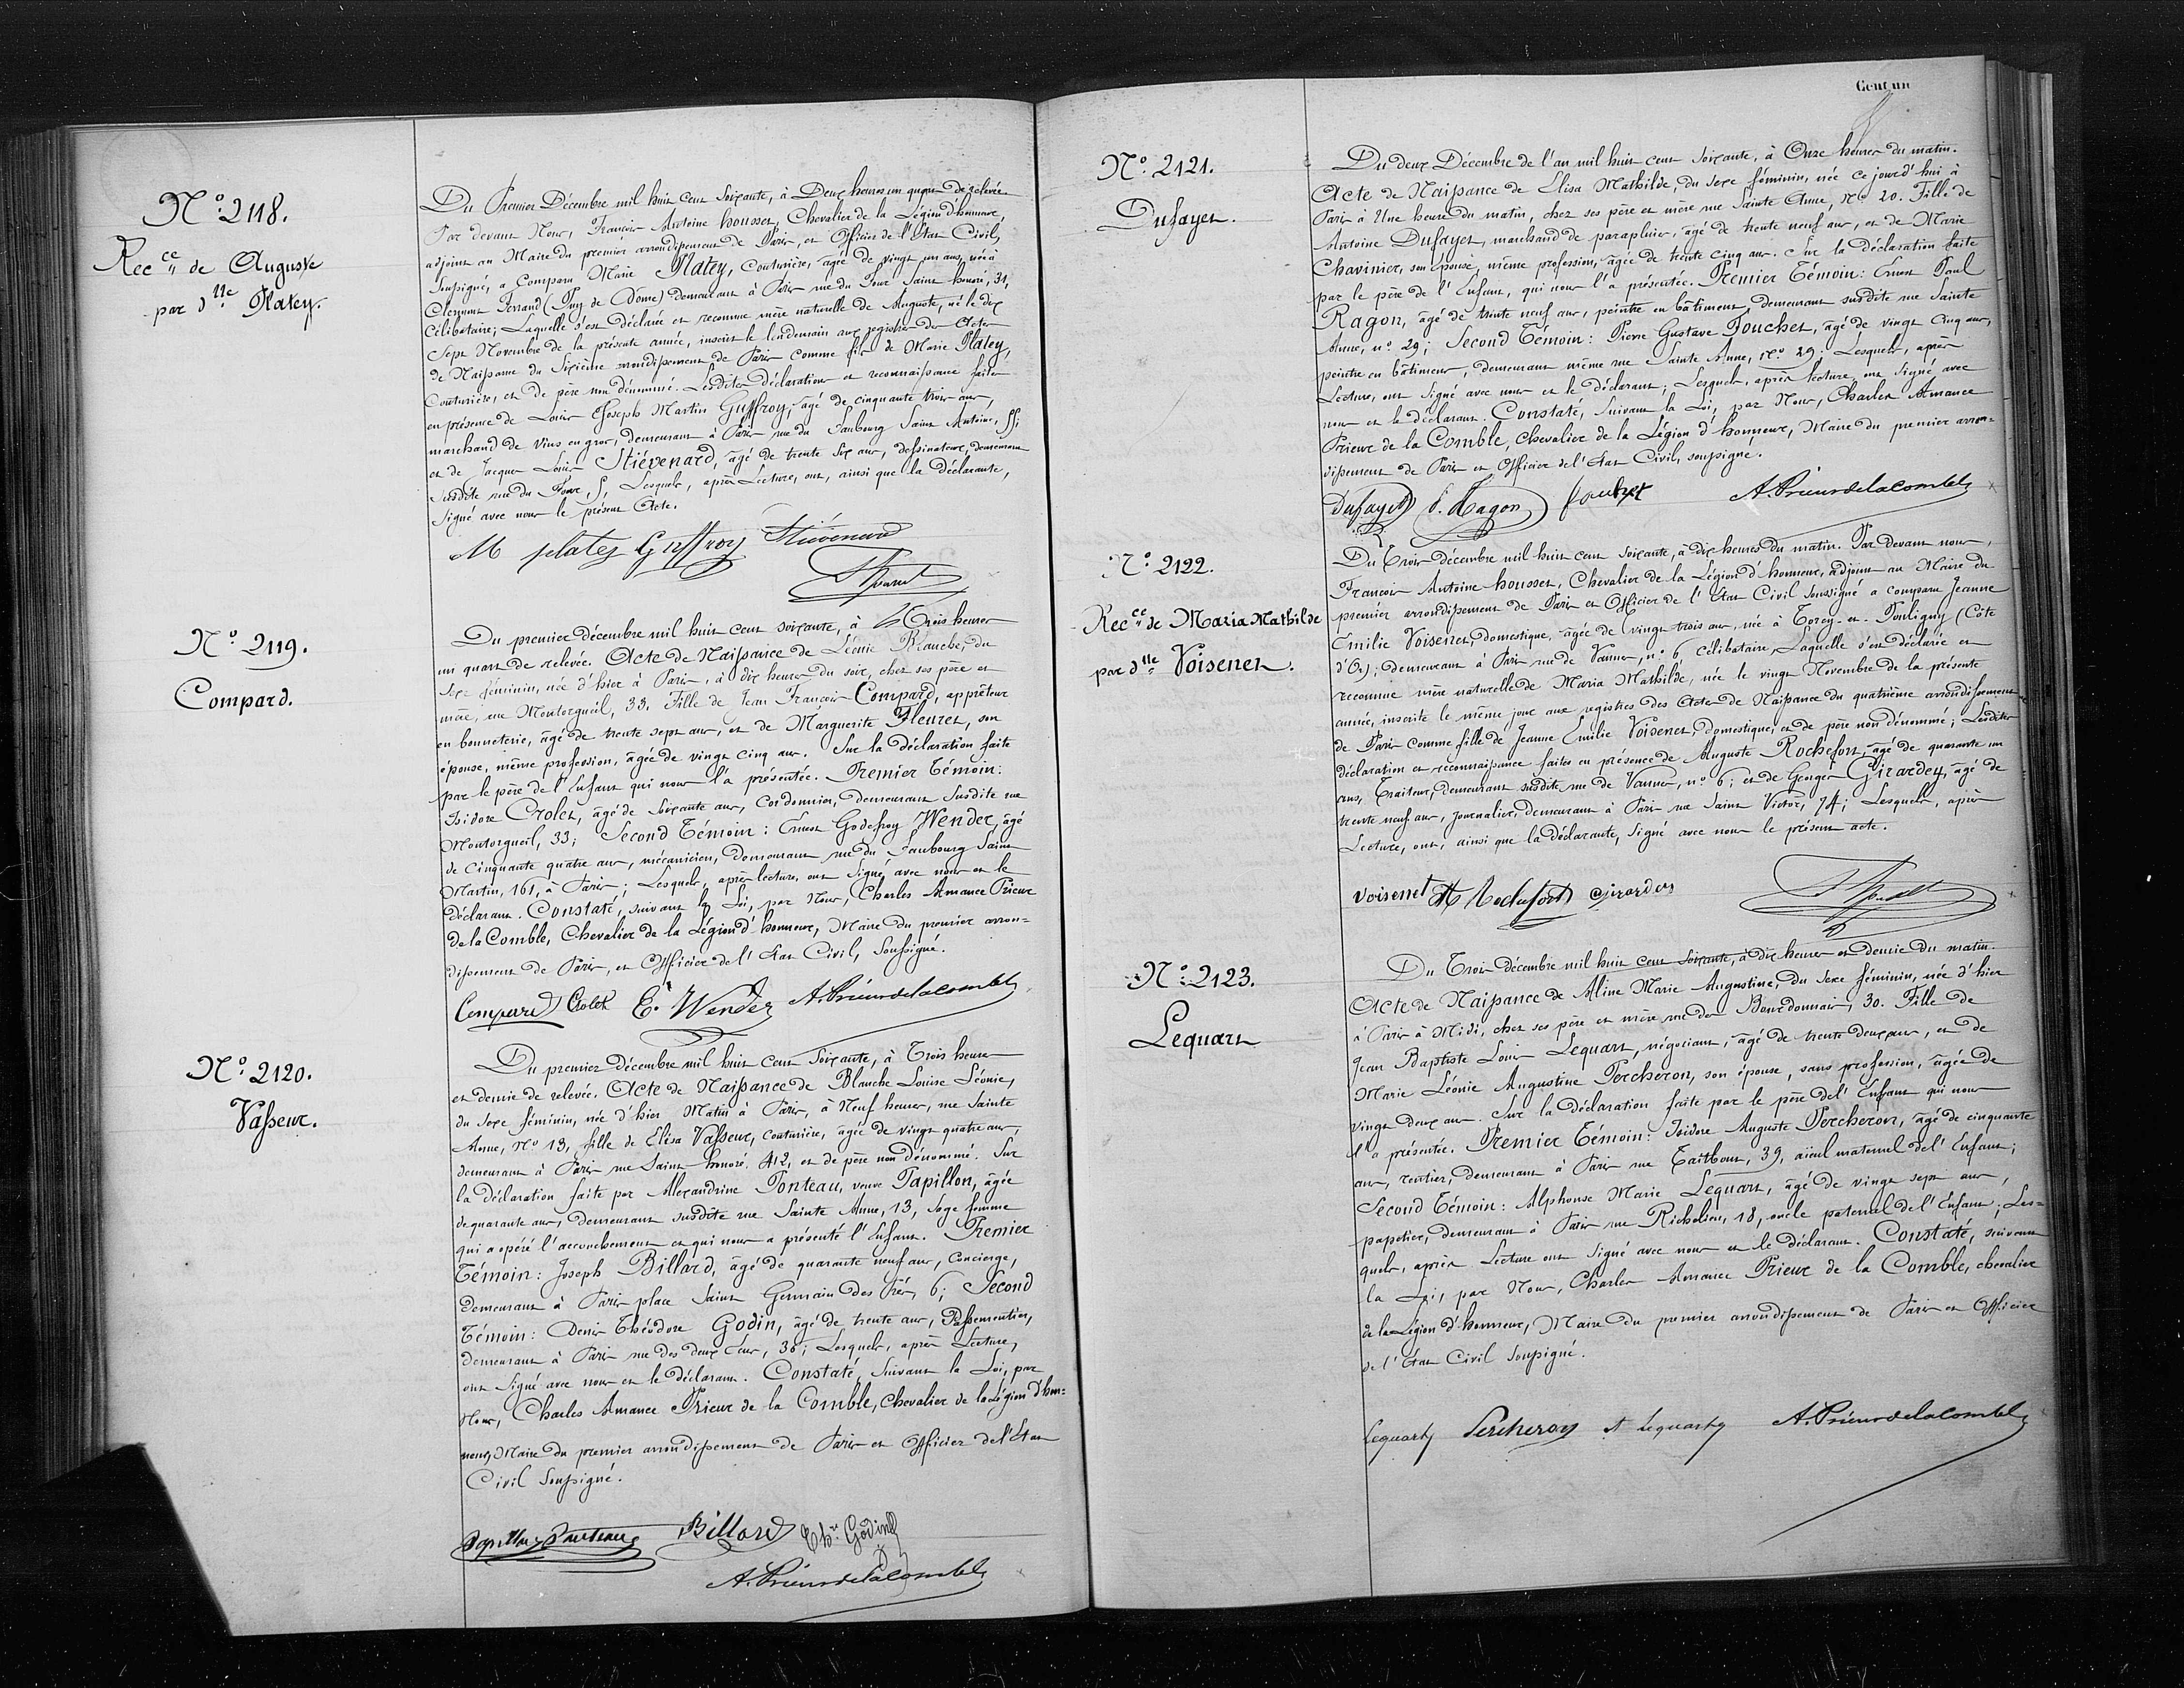 N.º 2118.
Rec.ce de Auguste
par d.lle Platey.
Du Premier Décembre mil huit cent Soixante, à Deux heures un quart de relevée.
Par devant Nous, François Antoine housset, Chevalier de la Légion d'honneur,
adjoint au Maire du premier arrondissement de Paris, et Officier de l'Etat Civil,
soussigné, a Comparu Marie Platey, Couturière, âgée de vingt un ans, née à
Clermont Ferrand (Puy de Dôme) demeurant à Paris rue du Four Saint honoré, 31,
Célibataire; Laquelle s'est déclarée et reconnue mère naturelle de Auguste, né le dix
Sept Novembre de la présente année, inscrit le lendemain aux registres des Actes
de Naissance du Sixième arrondissement de Paris comme fils de Marie Platey,
Couturière, et de père non dénommé. Lesdites déclaration et reconnaissance faites
en présence de Louis Joseph Martin Guffroy, âgé de cinquante trois ans,
marchand de vins en gros, demeurant à Paris rue du Faubourg Saint Antoine, 55;
et de Jacques Louis Stiévenard, âgé de trente Six ans, dessinateur, demeurant
susdite rue du Four, 5, Lesquels, après Lecture, ont, ainsi que la Déclarante,
Signé avec nous le présent Acte.
M platey Guffroy Stiévenard
N.º 2119.
Compard.
Du premier décembre mil huit cent soixante, à Trois heures
un quart de relevée. Acte de Naissance de Léonie Blanche, du
Sexe féminin, née d'hier à Paris, à dix heures du soir, chez ses père et
mère, rue Montorgueil, 33. Fille de Jean François Compard, apprêteur
en bonneterie, âgé de trente sept ans, et de Marguerite Fleuret, son
épouse, même profession, âgée de vingt cinq ans. Sur la déclaration faite
par le père de l'Enfant qui nous l'a présentée. Premier Témoin:
Isidore Crolet, âgé de Soixante ans, Cordonnier, demeurant Susdite rue
Montorgueil, 33; Second Témoin: Ernest Godefroy Wender, âgé
de Cinquante quatre ans, mécanicien, demeurant rue du Faubourg Saint
Martin, 161, à Paris; Lesquels, après lecture, ont Signé avec nous et le
déclarant. Constaté, suivant la Loi, par Nous, Charles Amance Prieur
de la Comble, Chevalier de la Légion d'honneur, Maire du premier arron=
dissement de Paris, et Officier de l'Etat Civil, Soussigné.
Compard Crolet E. Wender A. Prieurdelacomble
N.º 2120.
Vasseur.
Du premier décembre mil huit cent Soixante, à Trois heures
et demie de relevée. Acte de Naissance de Blanche Louise Léonie,
du sexe féminin, née d'hier Matin à Paris, à Neuf heures, rue Sainte
Anne, Nº 13, fille de Elisa Vasseur, Couturière, âgée de vingt quatre ans,
demeurant à Paris rue Saint honoré, 412, et de père non dénommé. Sur
la déclaration faite par Alexandrine Ponteau, veuve Papillon, âgée
de quarante ans, demeurant susdite rue Sainte Anne, 13, Sage femme
qui a opéré l'accouchement et qui nous a présenté l'Enfant. Premier
Témoin: Joseph Billard, âgé de quarante neuf ans, Concierge,
demeurant à Paris place Saint Germain des Prés, 6; Second
Témoin: Denis Théodore Godin, âgé de trente ans, Passementier,
demeurant à Paris rue des deux Ecus, 36; Lesquels, après Lecture,
ont Signé avec nous et le déclarant. Constaté, Suivant la Loi, par
Nous, Charles Amance Prieur de la Comble, Chevalier de la Légion d'hon=
neur, Maire du premier arrondissement de Paris et Officier de l'Etat
Civil Soussigné.
Billard Th.re Godin
A. Prieurdelacomble
Cent un
N.º 2121.
Dufayet.
Du deux Décembre de l'an mil huit cent soixante, à Onze heures du matin.
Acte de Naissance de Elisa Mathilde, du sexe féminin, née ce jourd'hui à
Paris à Une heure du matin, chez ses père et mère rue Sainte Anne, Nº 20. Fille de
Antoine Dufayet, marchand de parapluies, âgé de trente neuf ans, et de Marie
Chavinier, son épouse, même profession, âgée de trente cinq ans. Sur la déclaration faite
par le père de l'Enfant, qui nous l'a présentée. Premier Témoin: Ernest Paul
Ragon, âgé de trente neuf ans, peintre en bâtiment, demeurant susdite rue Sainte
Anne, nº 29; Second Témoin: Pierre Gustave Fouchet, âgé de vingt cinq ans,
peintre en bâtiment, demeurant même rue Sainte Anne, Nº 29; Lesquels, après
Lecture, ont signé avec nous et le déclarant; Lesquels, après lecture ont signé avec
nous et le déclarant. Constaté, suivant la Loi, par Nous, Charles Amance
Prieur de la Comble, Chevalier de la Légion d'honneur, Maire du premier arron=
dissement de Paris et Officier de l'Etat Civil, soussigné.
Dufayet E. Ragon fouchet A. Prieurdelacomble
N.º 2122.
Rec.ce de Maria Mathilde
par d.lle Voisenet.
Du Trois Décembre mil huit cent soixante, à dix heures du matin. Par devant nous,
François Antoine housset, Chevalier de la Légion d'honneur, adjoint au Maire du
premier arrondissement de Paris et Officier de l'Etat Civil Soussigné a comparu Jeanne
Emilie Voisenet, domestique, âgée de vingt trois ans, née à Torcy-et-Pouligny (Côte
d'Or), demeurant à Paris rue de Vannes, nº 6 célibataire, Laquelle s'est déclarée et
reconnue mère naturelle de Maria Mathilde, née le vingt Novembre de la présente
année, inscrite le même jour aux registres des Actes de Naissance du quatrième arrondissement
de Paris comme fille de Jeanne Emilie Voisenet, domestique, et de père non dénommé; Lesdites
déclaration et reconnaissance faites en présence de Auguste Rochefort, âgé de quarante un
ans, Traiteur, demeurant susdite rue de Vannes, nº 6; et de Georges Girardey, âgé de
trente neuf ans, journalier, demeurant à Paris rue Saint Victor, 74; Lesquels, après
Lecture, ont, ainsi que la déclarante, signé avec nous le présent acte.
voisenet A Rochefort girardey
N.º 2123.
Lequart
Du Trois décembre mil huit cent soixante, à dix heures et demie du matin.
Acte de Naissance de Aline Marie Augustine, du sexe féminin, née d'hier
à Paris à Midi, chez ses père et mère rue des Bourdonnais, 30. Fille de
Jean Baptiste Louis Lequart, négociant, âgé de trente deux ans, et de
Marie Léonie Augustine Percheron, son épouse, sans profession, âgée de
vingt deux ans. Sur la déclaration faite par le père de l'Enfant qui nous
l'a présentée. Premier Témoin: Isidore Auguste Percheron, âgé de cinquante
ans, rentier, demeurant à Paris rue Taitbout, 39, aïeul maternel de l'Enfant;
Second Témoin: Alphonse Marie Lequart, âgé de vingt sept ans,
papetier, demeurant à Paris rue Richelieu, 18, oncle paternel de l'Enfant; Les=
quels, après Lecture ont signé avec nous et le déclarant. Constaté, suivant
la Loi, par Nous, Charles Amance Prieur de la Comble, chevalier
de la Légion d'honneur, Maire du premier arrondissement de Paris et Officier
de l'Etat Civil soussigné.
Lequart Percheron A Lequart A. Prieurdelacomble